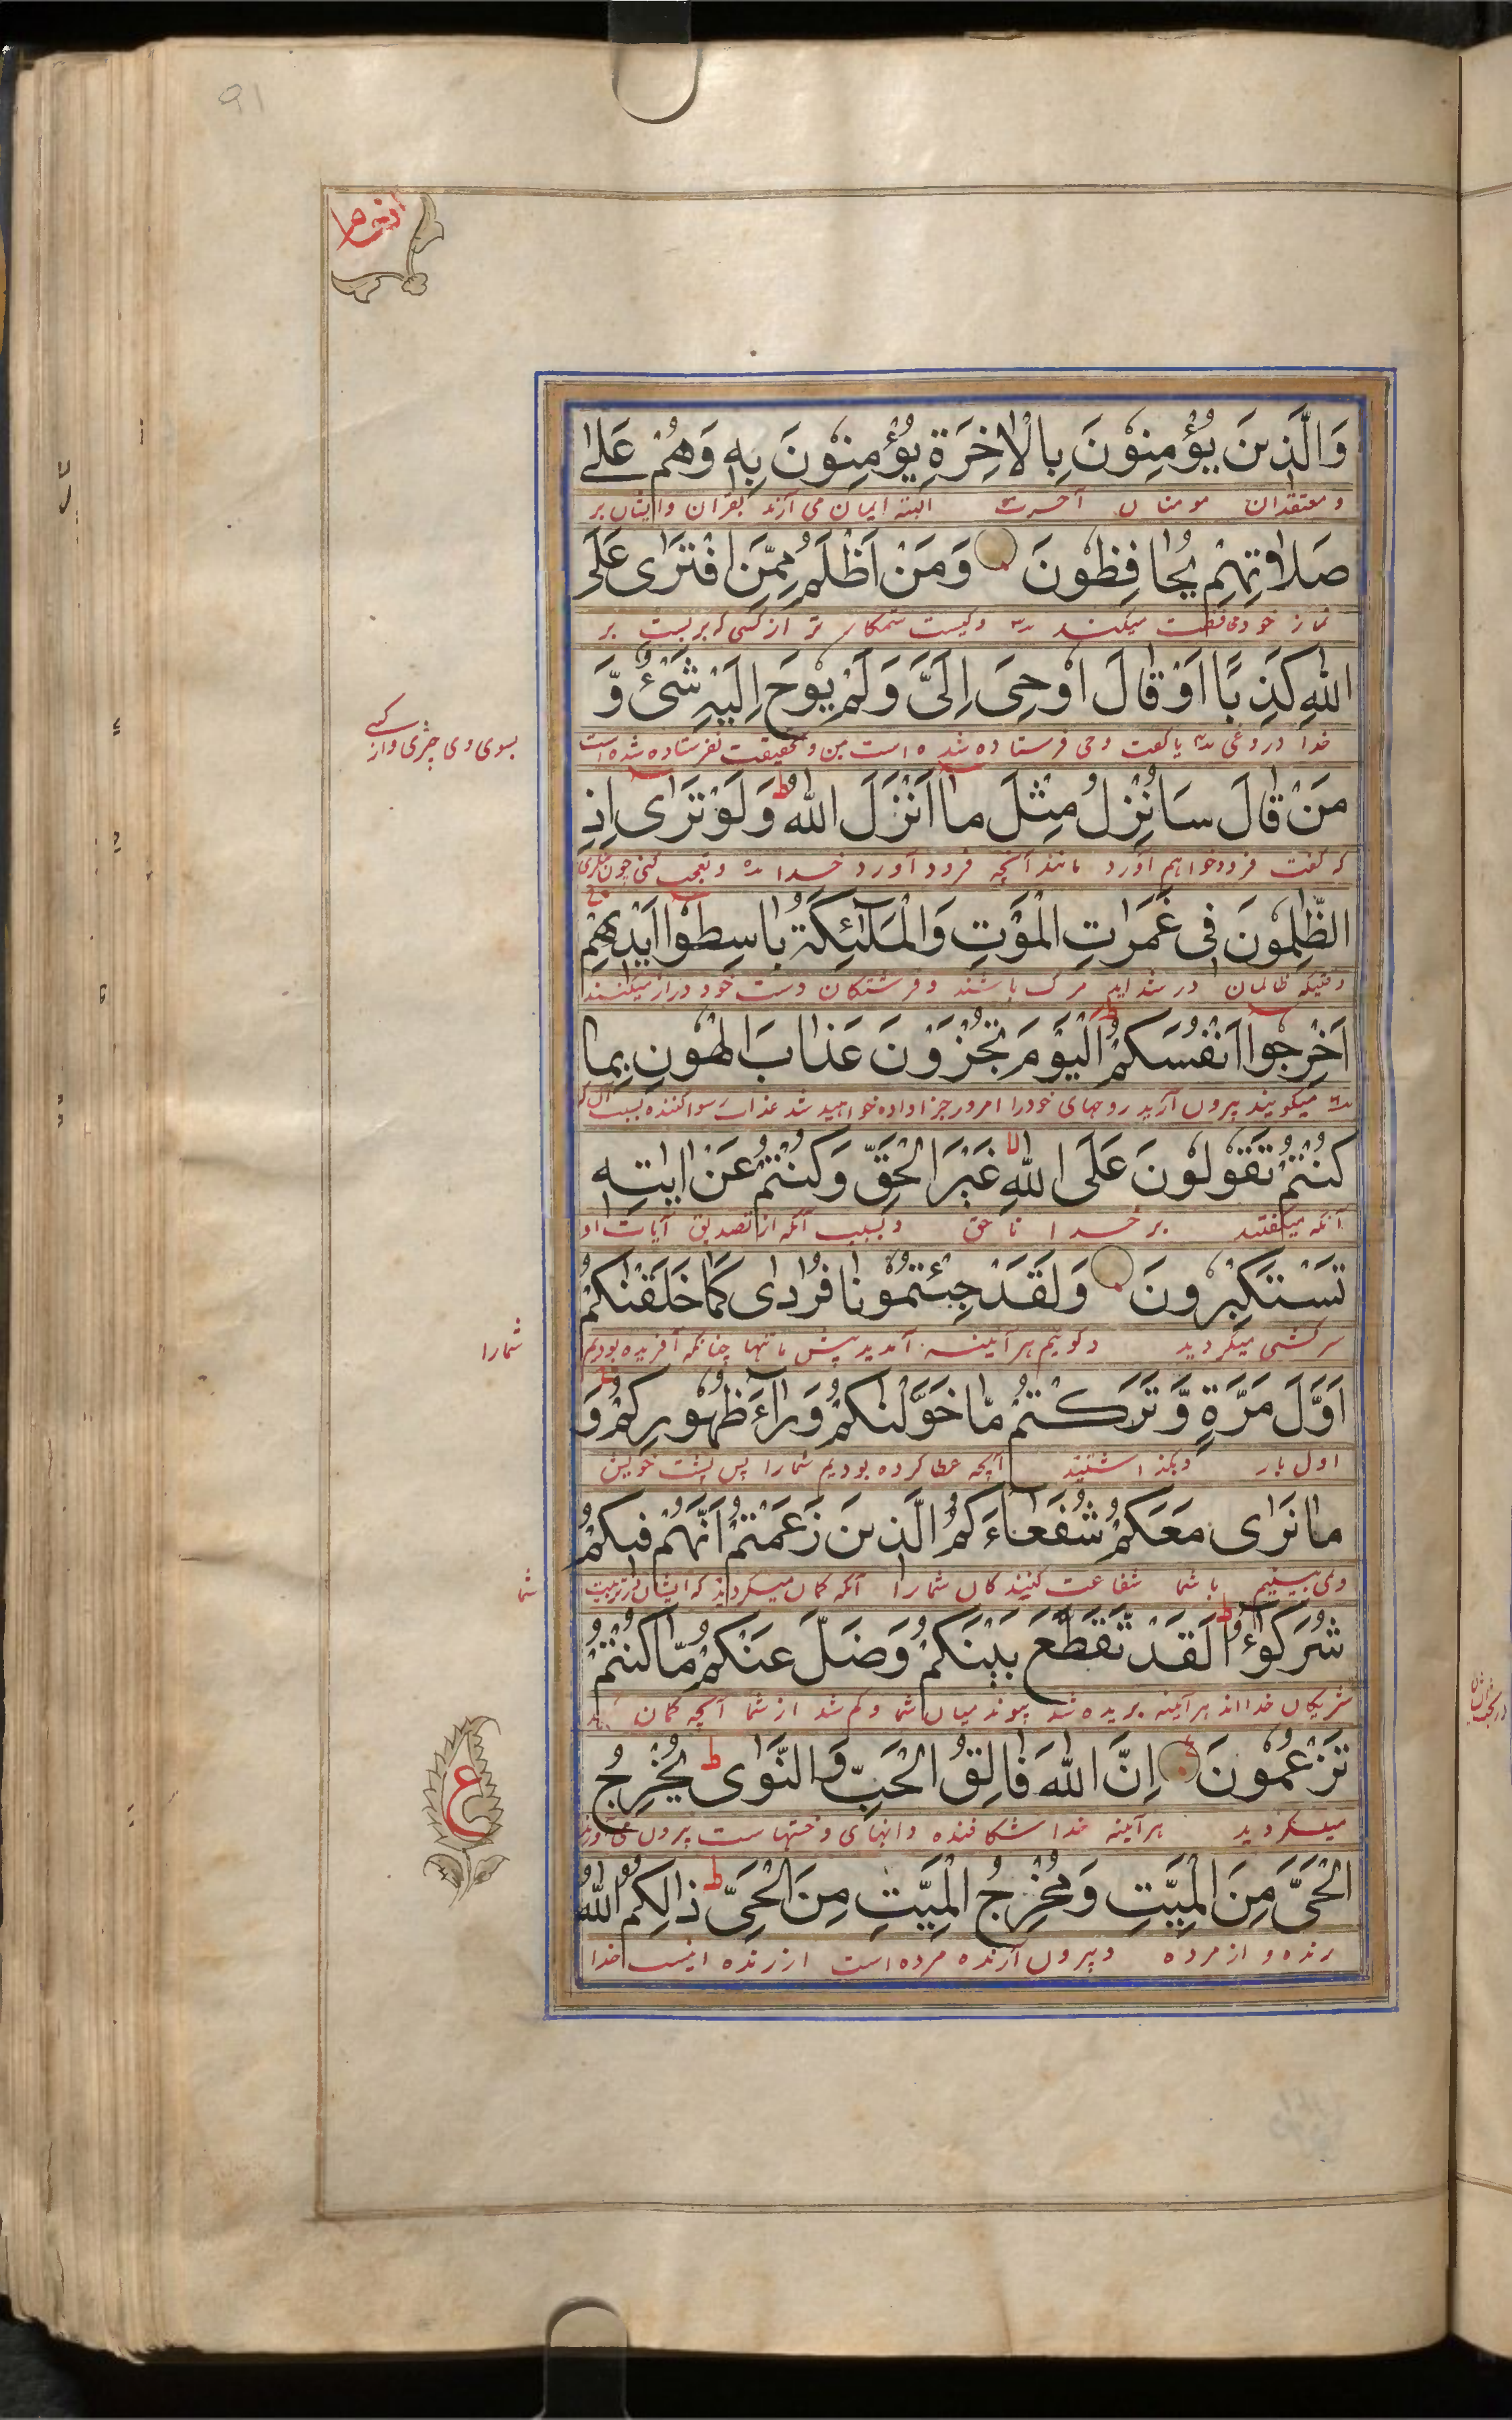 91
وَالَّذِينَ يُؤْمِنُونَ بِالْاٰخِرَةِ يُؤْمِنُونَ بِهٖ وَهُمْ عَلٰى
و معتقدان مومنان آخرت البته ایمان می آرند بقرآن وایشان بر
صَلَاتِهِمْ يُحَافِظُونَ وَمَنْ اَظْلَمُ مِمَّنِ افْتَرٰى عَلَى
نماز خود محافظت میکنند وکیست ستمکار تر از کسی که بربست بر
اللهِ كَذِبًا اَوْ قَالَ اُوْحِیَ اِلَیَّ وَلَمْ يُوْحَ اِلَيْهِ شَیْءٌ وَّ
خدا دروغی یا گفت وحی فرستاده شده است بمن و بحقیقت نفرستاده شده است
بسوی وی چیزی واز کسے
مَنْ قَالَ سَاُنْزِلُ مِثْلَ مَا اَنْزَلَ اللهُ ط وَلَوْ تَرٰى اِذِ
که گفت فرود خواهم آورد مانند آنچه فرود آورد خدا و تعجب کنی چون بنگری
الظّٰلِمُونَ فِی غَمَرَاتِ الْمَوْتِ وَالْمَلٰٓئِكَةُ بَاسِطُوْا اَيْدِيْهِمْ
وقتیکه ظالمان در شداید مرگ باشند و فرشتگان دست خود دراز میکنند
اَخْرِجُوْا اَنْفُسَكُمُ ط اَلْيَوْمَ تُجْزَوْنَ عَذَابَ الْهُوْنِ بِمَا
میگویند بیرون آرید روحهای خودرا امروز جزا داده خواهید شد عذاب رسوا کننده بسبب آن که
كُنْتُمْ تَقُوْلُوْنَ عَلَى اللهِ غَيْرَ الْحَقِّ وَكُنْتُمْ عَنْ اٰيٰتِهٖ
آنکه میگفتید بر خدا ناحق و بسبب آنکه از تصدیق آیات او
تَسْتَكْبِرُوْنَ وَلَقَدْ جِئْتُمُوْنَا فُرَادٰى كَمَا خَلَقْنٰكُمْ
سرکشی میکردید و گوئیم هر آئینه آمدید پیش ما تنها چنانکه آفریده بودیم
شمارا
اَوَّلَ مَرَّةٍ وَّتَرَكْتُمْ مَّا خَوَّلْنٰكُمْ وَرَآءَ ظُهُوْرِكُمْ وَ
اول بار و بگذاشتید آنچه عطا کرده بودیم شمارا پس پشت خویش
مَا نَرٰى مَعَكُمْ شُفَعَاءَكُمُ الَّذِيْنَ زَعَمْتُمْ اَنَّهُمْ فِيْكُمْ
ونمی بینیم با شما شفاعت کنندگان شمارا آنکه گمان میکردید که ایشان در تربیت
شما
شُرَكٰؤُا ط لَقَدْ تَّقَطَّعَ بَيْنَكُمْ وَضَلَّ عَنْكُمْ مَّا كُنْتُمْ
شریکان خدااند هر آئینه بریده شد پیوند میان شما و گم شد از شما آنچه گمان
تَزْعُمُوْنَ اِنَّ اللهَ فَالِقُ الْحَبِّ وَالنَّوٰى ط يُخْرِجُ
میکردید هر آئینه خدا شکافنده دانهای وخستهاست بیرون می آورد
ع
الْحَیَّ مِنَ الْمَيِّتِ وَمُخْرِجُ الْمَيِّتِ مِنَ الْحَیِّ ط ذٰلِكُمُ اللهُ
زنده و از مرده و بیرون آرنده مرده است از زنده اینست خدا